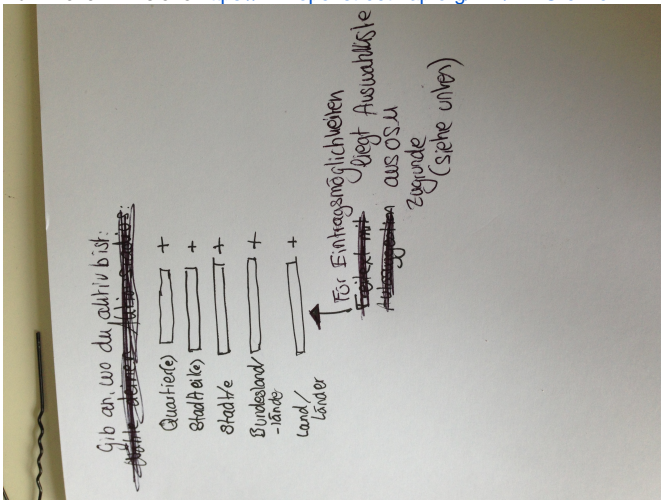 Gib an, wo du aktiv bist:
Quartier(e) +
Stadtteil(e) +
Stadt/e +
Bundesland/
-lände +
Land/
Länder +
Für Eintragsmöglichkeiten
liegt Auswahlliste
aus OSM
zugrunde
(siehe unten)